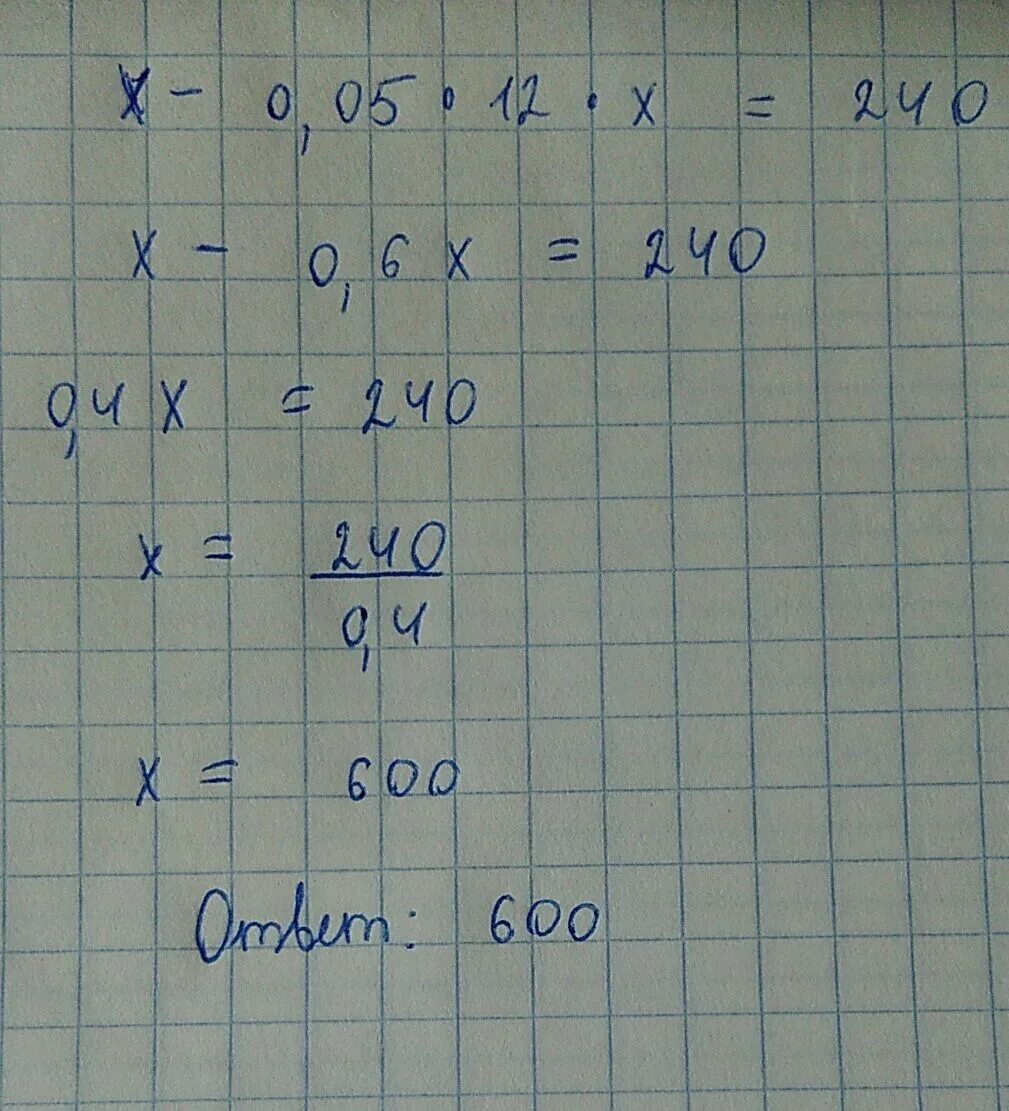 x - 0,05 · 12 · x = 240
x - 0,6 x = 240
0,4 x = 240
x = 240
0,4
x = 600
Ответ: 600